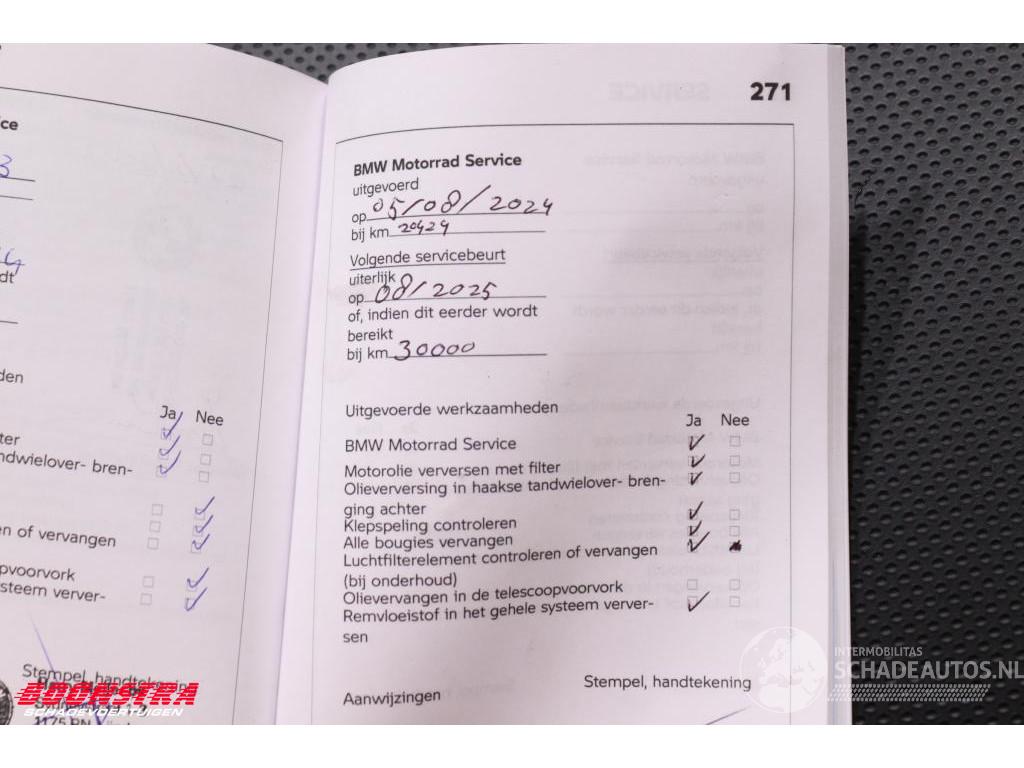 271
ce
3
dt
den
Ja Nee
ter
ndwielover- bren-
en of vervangen
pvoorvork
steem verver-
Stempel, handtekenin
BMW Motorrad Service
uitgevoerd
op 05/08/2024
bij km 20424
Volgende servicebeurt
uiterlijk
op 08/2025
of, indien dit eerder wordt
bereikt
bij km 30000
Uitgevoerde werkzaamheden
Ja Nee
BMW Motorrad Service
Motorolie verversen met filter
Olieverversing in haakse tandwielover- bren-
ging achter
Klepspeling controleren
Alle bougies vervangen
Luchtfilterelement controleren of vervangen
(bij onderhoud)
Olievervangen in de telescoopvoorvork
Remvloeistof in het gehele systeem verver-
sen
Stempel, handtekening
Aanwijzingen
SCHADEVOERTUIGEN
INTERMOBILITAS
SCHADEAUTOS.NL